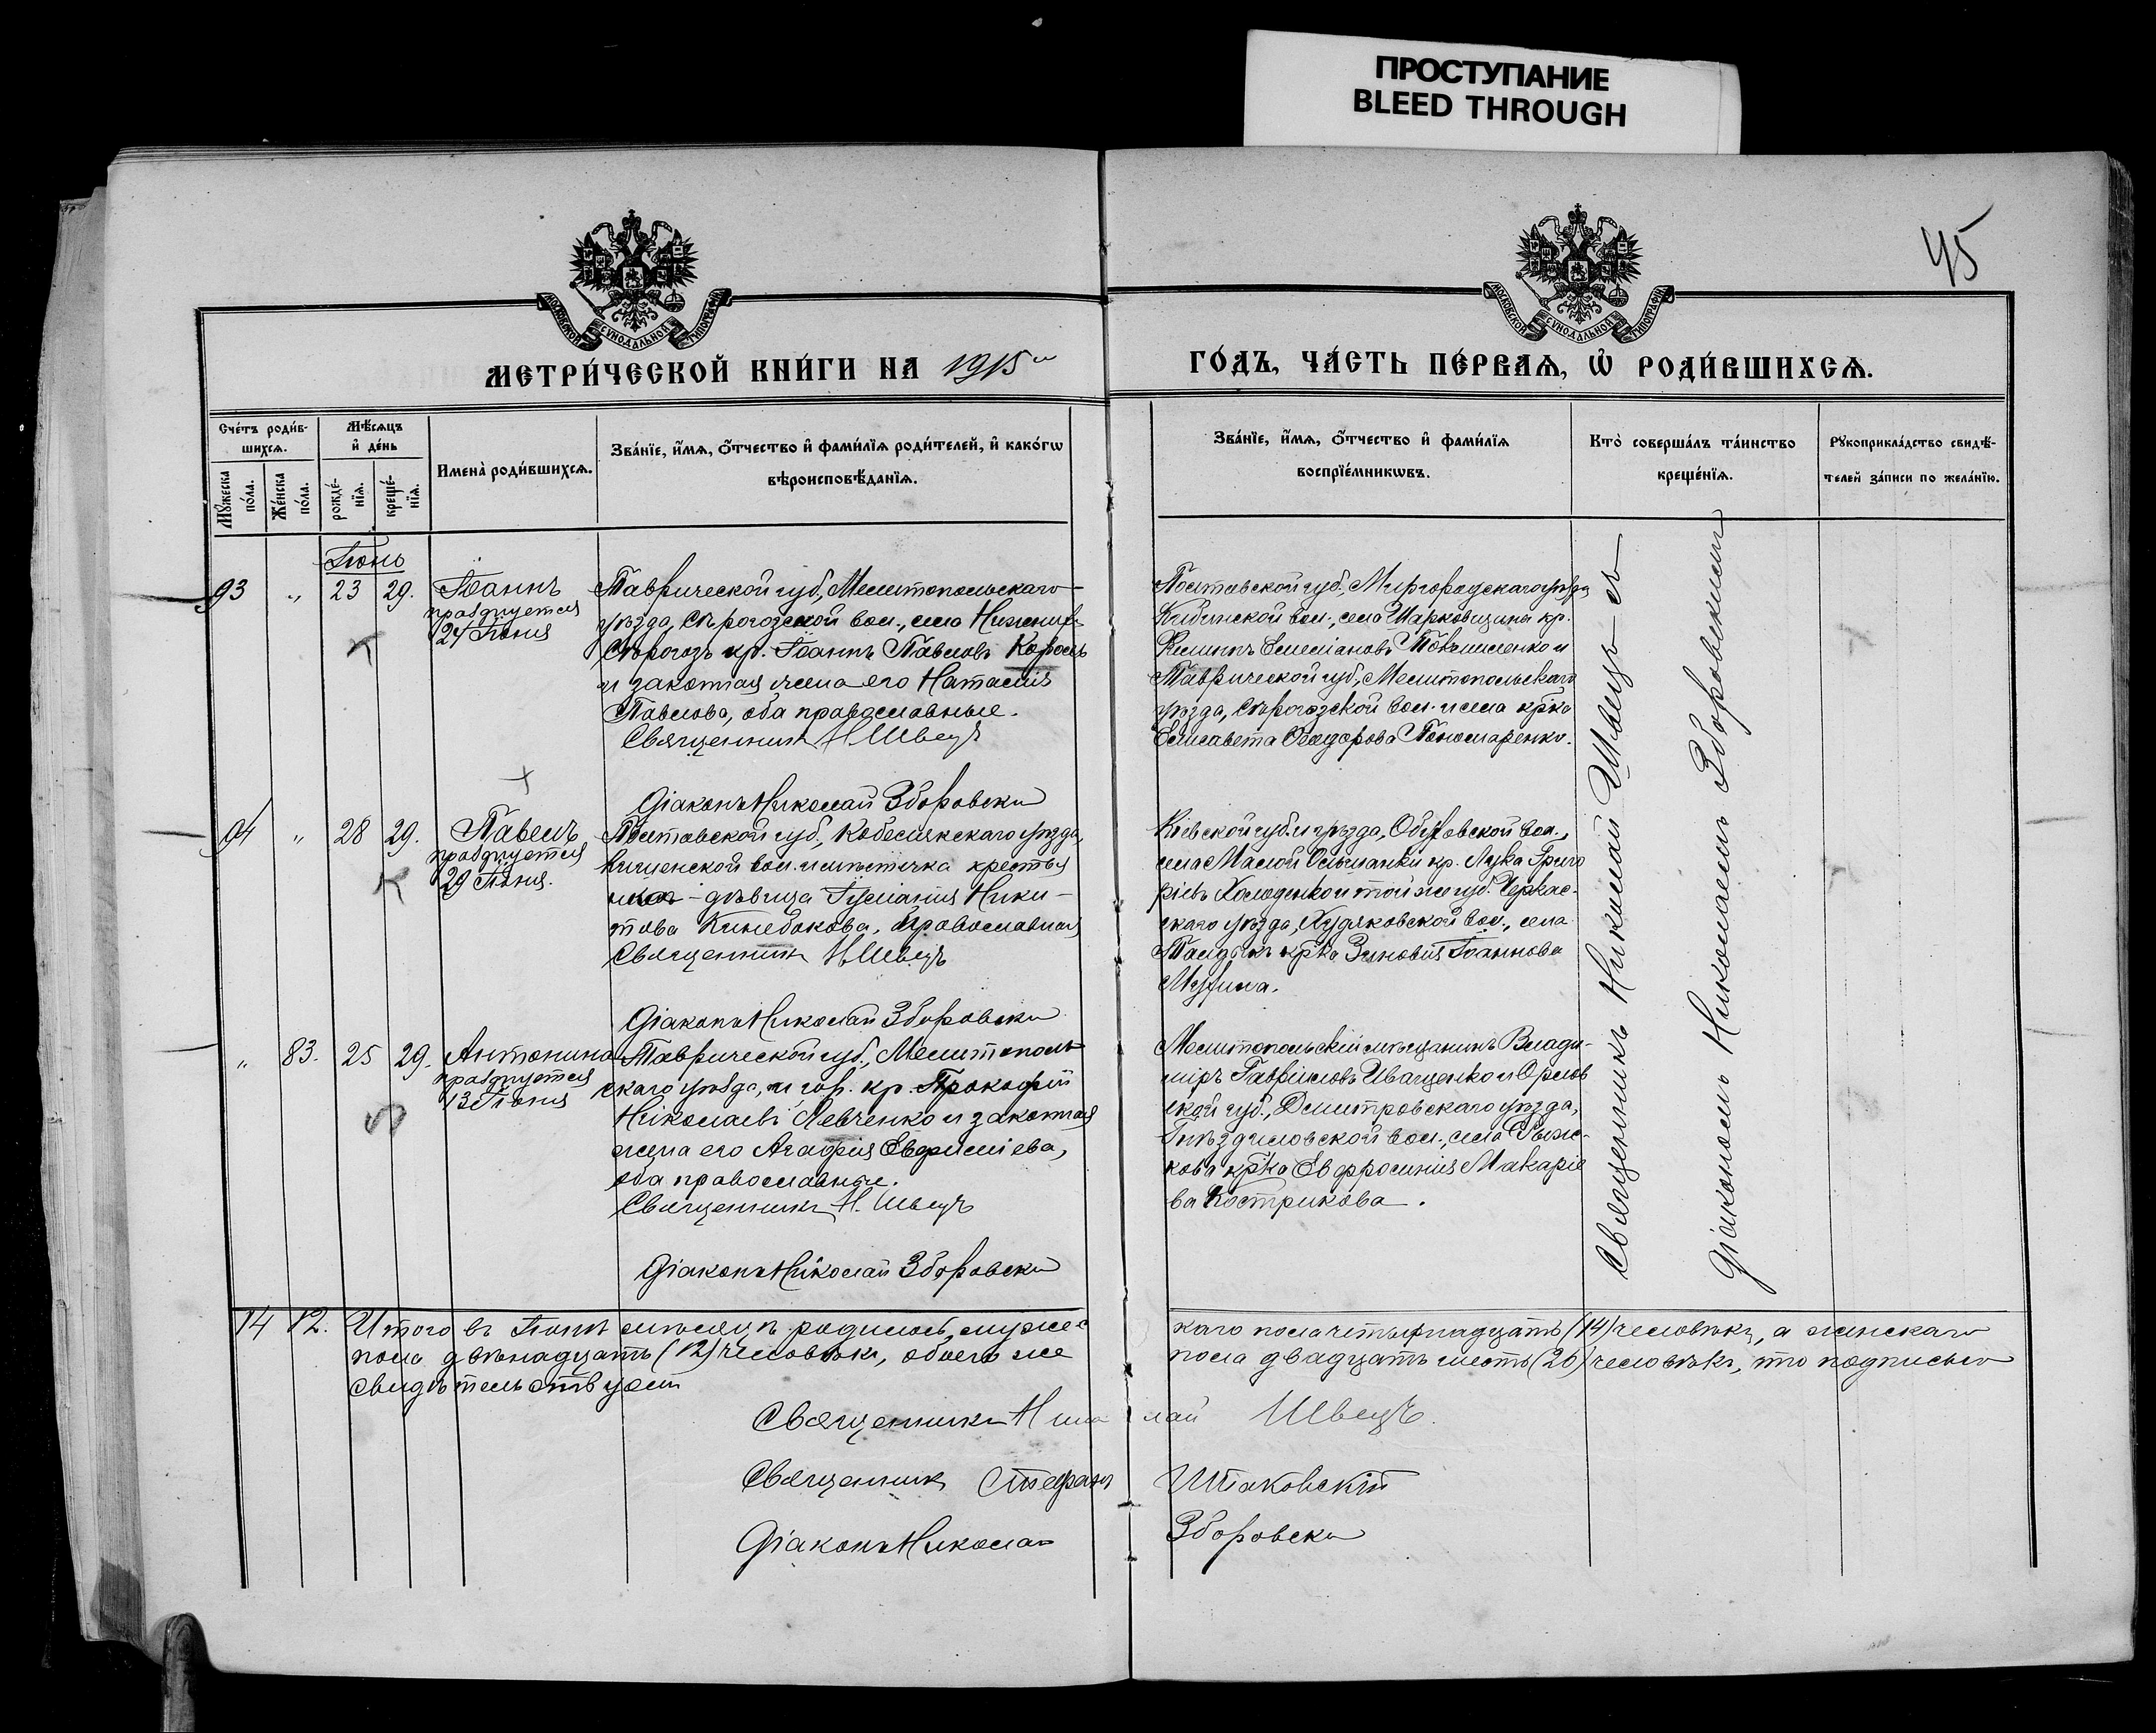 ПРОСТУПАНИЕ
BLEED THROUGH
45
МОСКОВСКОЙ СѴНОДАЛЬНОЙ ТИПОГРАФІИ
МОСКОВСКОЙ СѴНОДАЛЬНОЙ ТИПОГРАФІИ
МЕТРИ́ЧЕСКОЙ КНИ́ГИ НА 1915 й
ГО́ДЪ, ЧА́СТЬ ПЕ́РВАѦ, Ѡ҆ РОДИ́ВШИХСѦ.
Сче́тъ роди́в-
шихсѧ.
Мꙋжеска по́ла.
Же́нска по́ла.
Мѣ́сѧцъ
и҆ де́нь
рожде́-
нїѧ.
креще́-
нїѧ.
Имена̀ роди́вшихсѧ.
Зва́нїе, и҆́мѧ, ѻ҆́тчество и҆ фами́лїѧ роди́телей, и҆ како́гѡ
вѣроисповѣ́данїѧ.
Зва́нїе, и҆́мѧ, ѻ҆́тчество и҆ фами́лїѧ
воспрїе́мникѡвъ.
Кто̀ соверша́лъ та́инство
креще́нїѧ.
Рꙋкоприкла́дство свидѣ́-
телей за́писи по жела́нїю.
Іюнь
93 " 23 29. Іоаннъ
празднуется
24 Іюня
Таврической губ., Мелитопольскаго
уѣзда, Сѣрогозской вол., села Нижнихъ
Сѣрогозъ кр. Іоаннъ Павловъ Король
и законная жена его Наталія
Павлова, оба православные.
Священникъ Н. Швецъ
Діаконъ Николай Зборовскій
Полтавской губ., Миргородскаго уѣзда,
Кибинской вол., села Шарковщины кр.
Филиппъ Емеліановъ и
Таврической губ., Мелитопольскаго
уѣзда, Сѣрогозской вол. и села кр-ка
Елисавета Ѳеодорова Пономаренко.
94 " 28 29. Павелъ
празднуется
29 Іюня.
Полтавской губ., Кобелякскаго уѣзда,
вол. и мѣстечка крестья
нка - дѣвица Іуліанія Ники-
това Кинебокова, православная
Священникъ Н. Швецъ
Діаконъ Николай Зборовскій
Кіевской губ. и уѣзда, Обуховской вол.,
села Малой Ольшанки кр. Лука Григо
ріевъ Холоденко и той же губ. Черкас-
скаго уѣзда, Худяковской вол., села
кр-ка Зиновія Іоаннова
" 83. 25 29. Антонина
празднуется
13 Іюня
Таврической губ., Мелитополь
скаго уѣзда, и гор. кр. Прокофій
Николаевъ Левченко и законная
жена его Агафія Евфиміева,
оба православные.
Священникъ Н. Швецъ
Діаконъ Николай Зборовскій
Мелитопольскій мѣщанинъ Влади-
міръ Гавріиловъ Иващенко и Орлов
ской губ., Дмитровскаго уѣзда,
Гнѣздиловской вол., села Рыж-
кова кр-ка Евфросинія Макаріе
ва Кострикова.
Священникъ Николай Швецъ съ
Діакономъ Николаемъ Зборовскимъ
14 12. Итого въ Іюнѣ мѣсяцѣ родилось мужес
каго пола четырнадцать (14) человѣкъ, а женскаго
пола двѣнадцать (12) человѣкъ, обоего же
пола двадцать шесть (26) человѣкъ, что подписью
свидѣтельствуемъ
Священникъ Николай Швецъ.
Священникъ Стефанъ
Діаконъ Николай Зборовскій